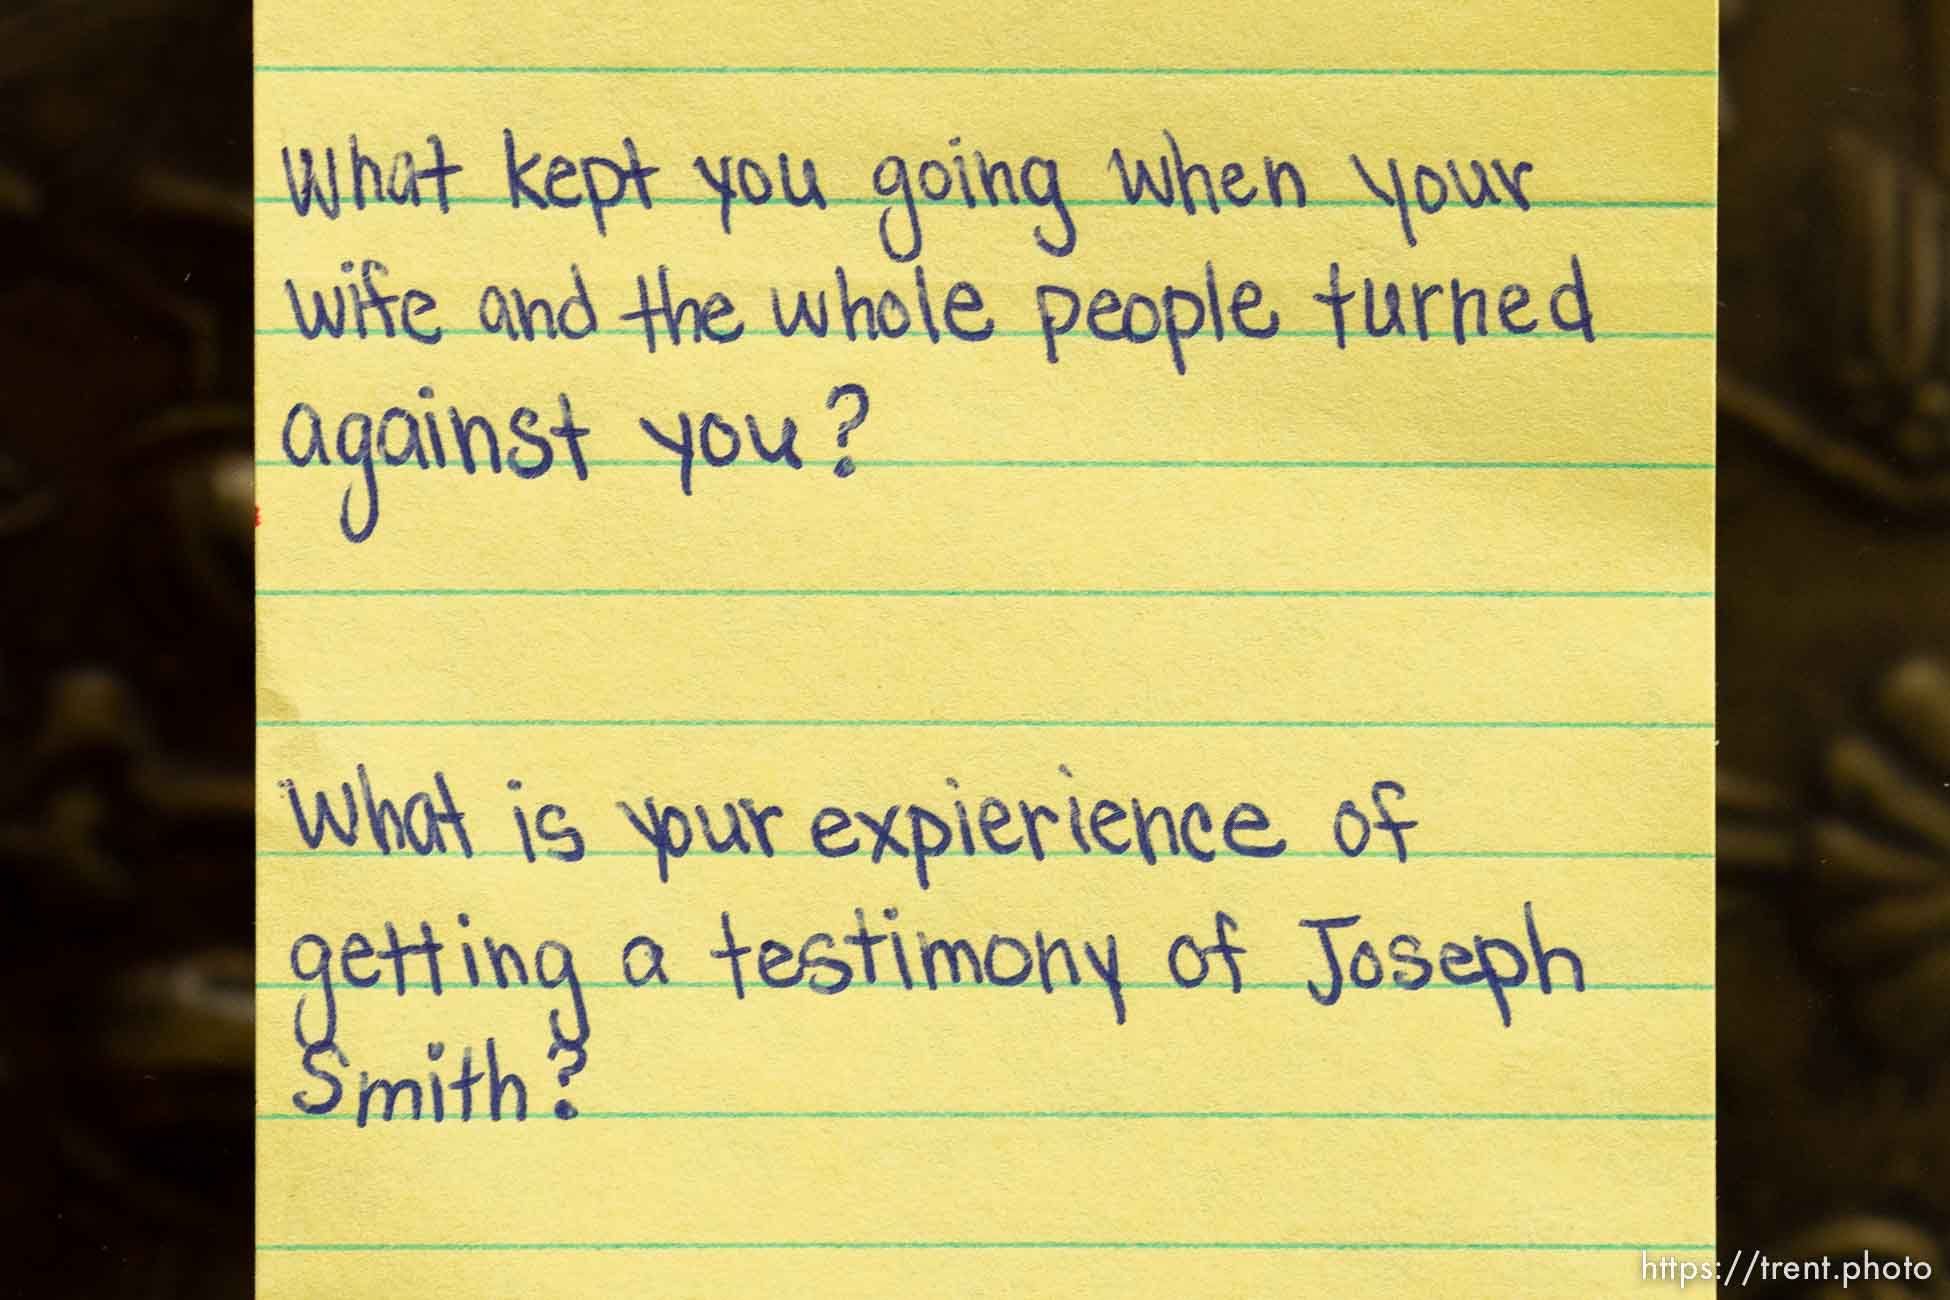 What kept you going when your
wife and the whole people turned
against you?
What is your expierience of
getting a testimony of Joseph
Smith?
https://trent.photo